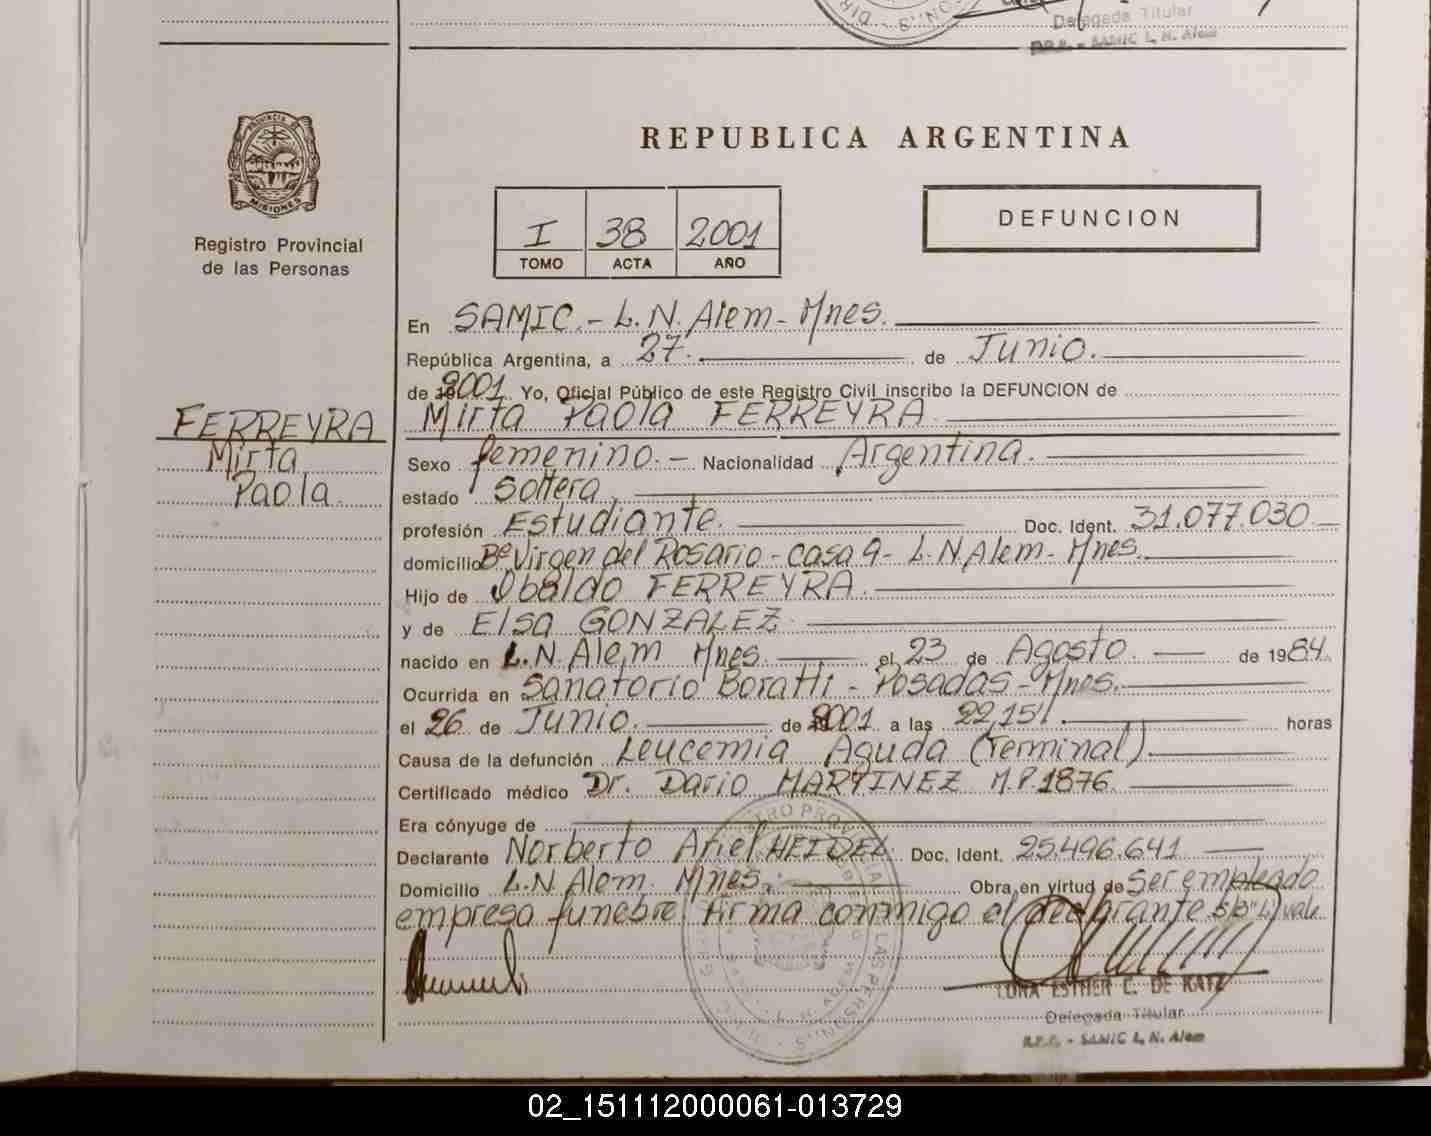 Delegada Titular
R.P.P. - SAMIC L. N. Alem
PROVINCIA DE
MISIONES
Registro Provincial
de las Personas
REPUBLICA ARGENTINA
I 38 2001
TOMO ACTA AÑO
DEFUNCION
En SAMIC.- L.N. Alem - Mnes.
República Argentina, a 27. de Junio.
de 2001 Yo, Oficial Público de este Registro Civil inscribo la DEFUNCION de
Mirta Paola FERREYRA
FERREYRA
Mirta
Paola.
Sexo femenino.- Nacionalidad Argentina.
estado Soltera
profesión Estudiante. Doc. Ident. 31.077.030
domicilio Bº Virgen del Rosario - casa 9 - L.N. Alem - Mnes.
Hijo de Obaldo FERREYRA.
y de Elsa GONZALEZ
nacido en L.N. Alem Mnes. el 23 de Agosto. de 1984.
Ocurrida en Sanatorio Boratti - Posadas - Mnes.
el 26 de Junio. de 2001 a las 22,15 horas
Causa de la defunción Leucemia Aguda (Terminal)
Certificado médico Dr. Dario MARTINEZ M.P. 1876
Era cónyuge de
Declarante Norberto Ariel HEIDEL Doc. Ident. 25.496.641
Domicilio L.N. Alem. Mnes. Obra en virtud de Ser empleado
empresa funebre. firma conmigo el declarante. S/B "L" vale
LORA ESTHER C. DE KATZ
Delegada Titular
R.P.P. - SAMIC L. N. Alem
02_151112000061-013729